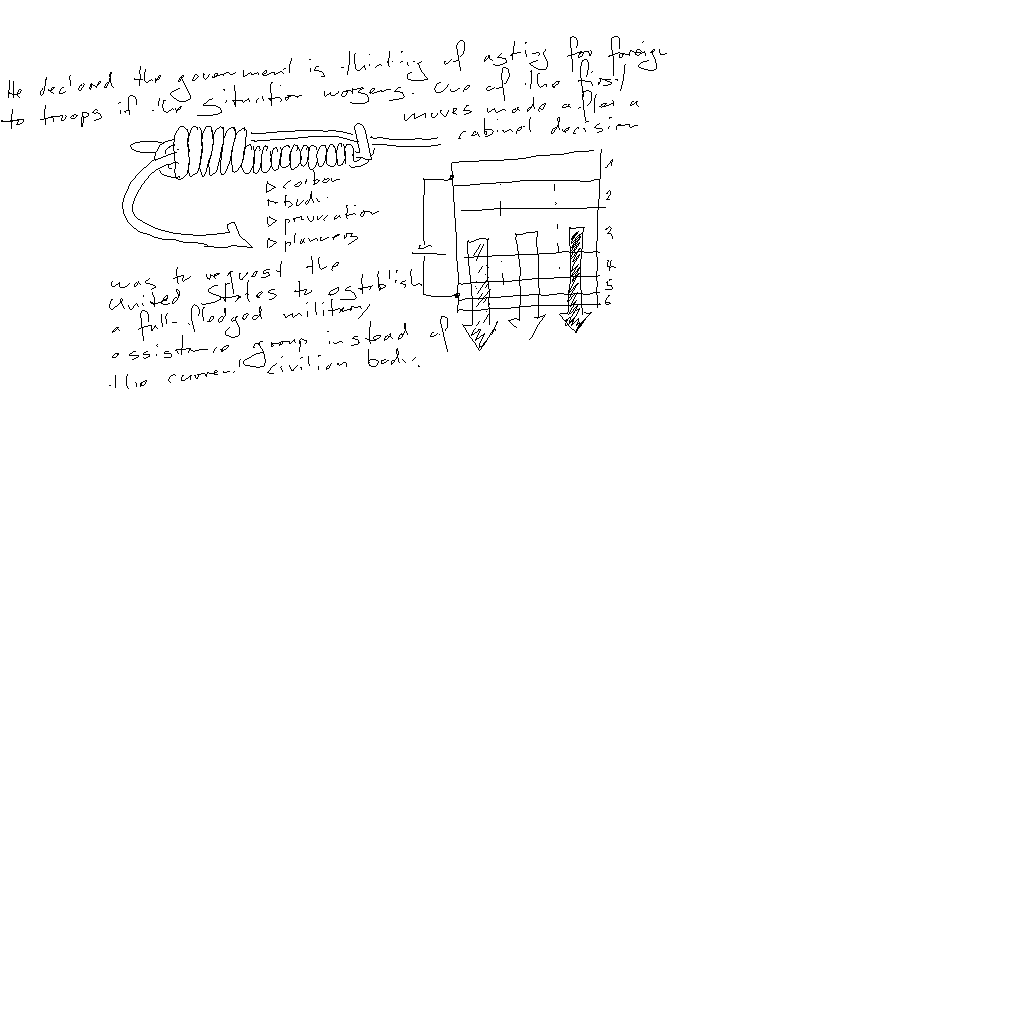 He declared the government is thinking of asking for foreign
to troops if the situation worsens. One of the first
moves made after a
cabinet decision
▷ carbon
▷ body
▷ provocation
▷ planners
1
2
3
4
5
6
was to request the
United States to establish
a full-fledged military
assistance group instead of
the current civilian body.